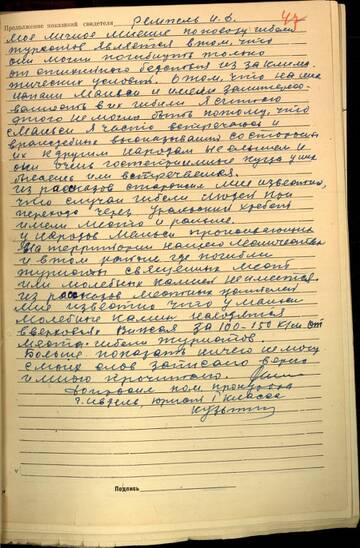 Продолжение показаний свидетеля Ремпель И. Д. 47
Мое личное мнение по поводу гибели
туристов является в том, что
они могли погибнуть только
от стихийного бедствия из за клима
тических условий. О том, что на них
напали Манси и имели заинтересо-
ванность в их гибели я считаю
этого не могло быть потому, что
с Манси я часто встречаюсь и
враждебных высказываний со стороны
их к другим народам не слышал и
они очень гостеприимные когда у них
бываешь или встречаешься.
Из рассказов старожил мне известно,
что случаи гибели людей при
переходе через Уральский хребет
имели место и раньше.
У народов Манси проживающих
на территории нашего лесничества
и в том районе где погибли
туристы священных мест
или молебных камней не имеется.
Из рассказов местных жителей
мне известно что у Манси
молебные камни находятся
в верховьях Вижая за 100-150 км от
места гибели туристов.
Больше показать ничего не могу
с моих слов записано верно
и мною прочитано.
Допросил пом. прокурора
г. Ивдель, юрист 1 класса
Кузьминых
Подпись